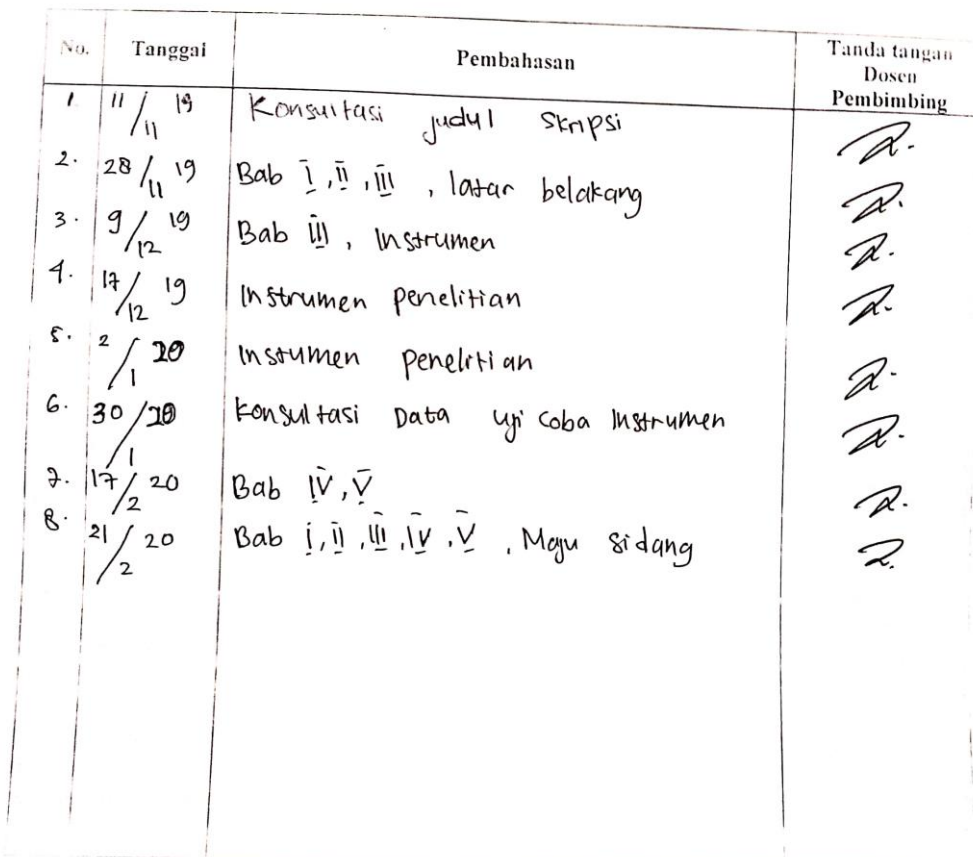 No. Tanggal Pembahasan Tanda tangan
Dosen
Pembimbing
1. 11/11 19 Konsultasi judul Skripsi
2. 28/11 19 Bab I, II, III, latar belakang
3. 9/12 19 Bab III, Instrumen
4. 17/12 19 Instrumen penelitian
5. 2/1 20 Instumen penelitian
6. 30/1 20 Konsultasi Data uji coba Instrumen
7. 17/2 20 Bab IV, V
8. 21/2 20 Bab I, II, III, IV, V, Maju Sidang